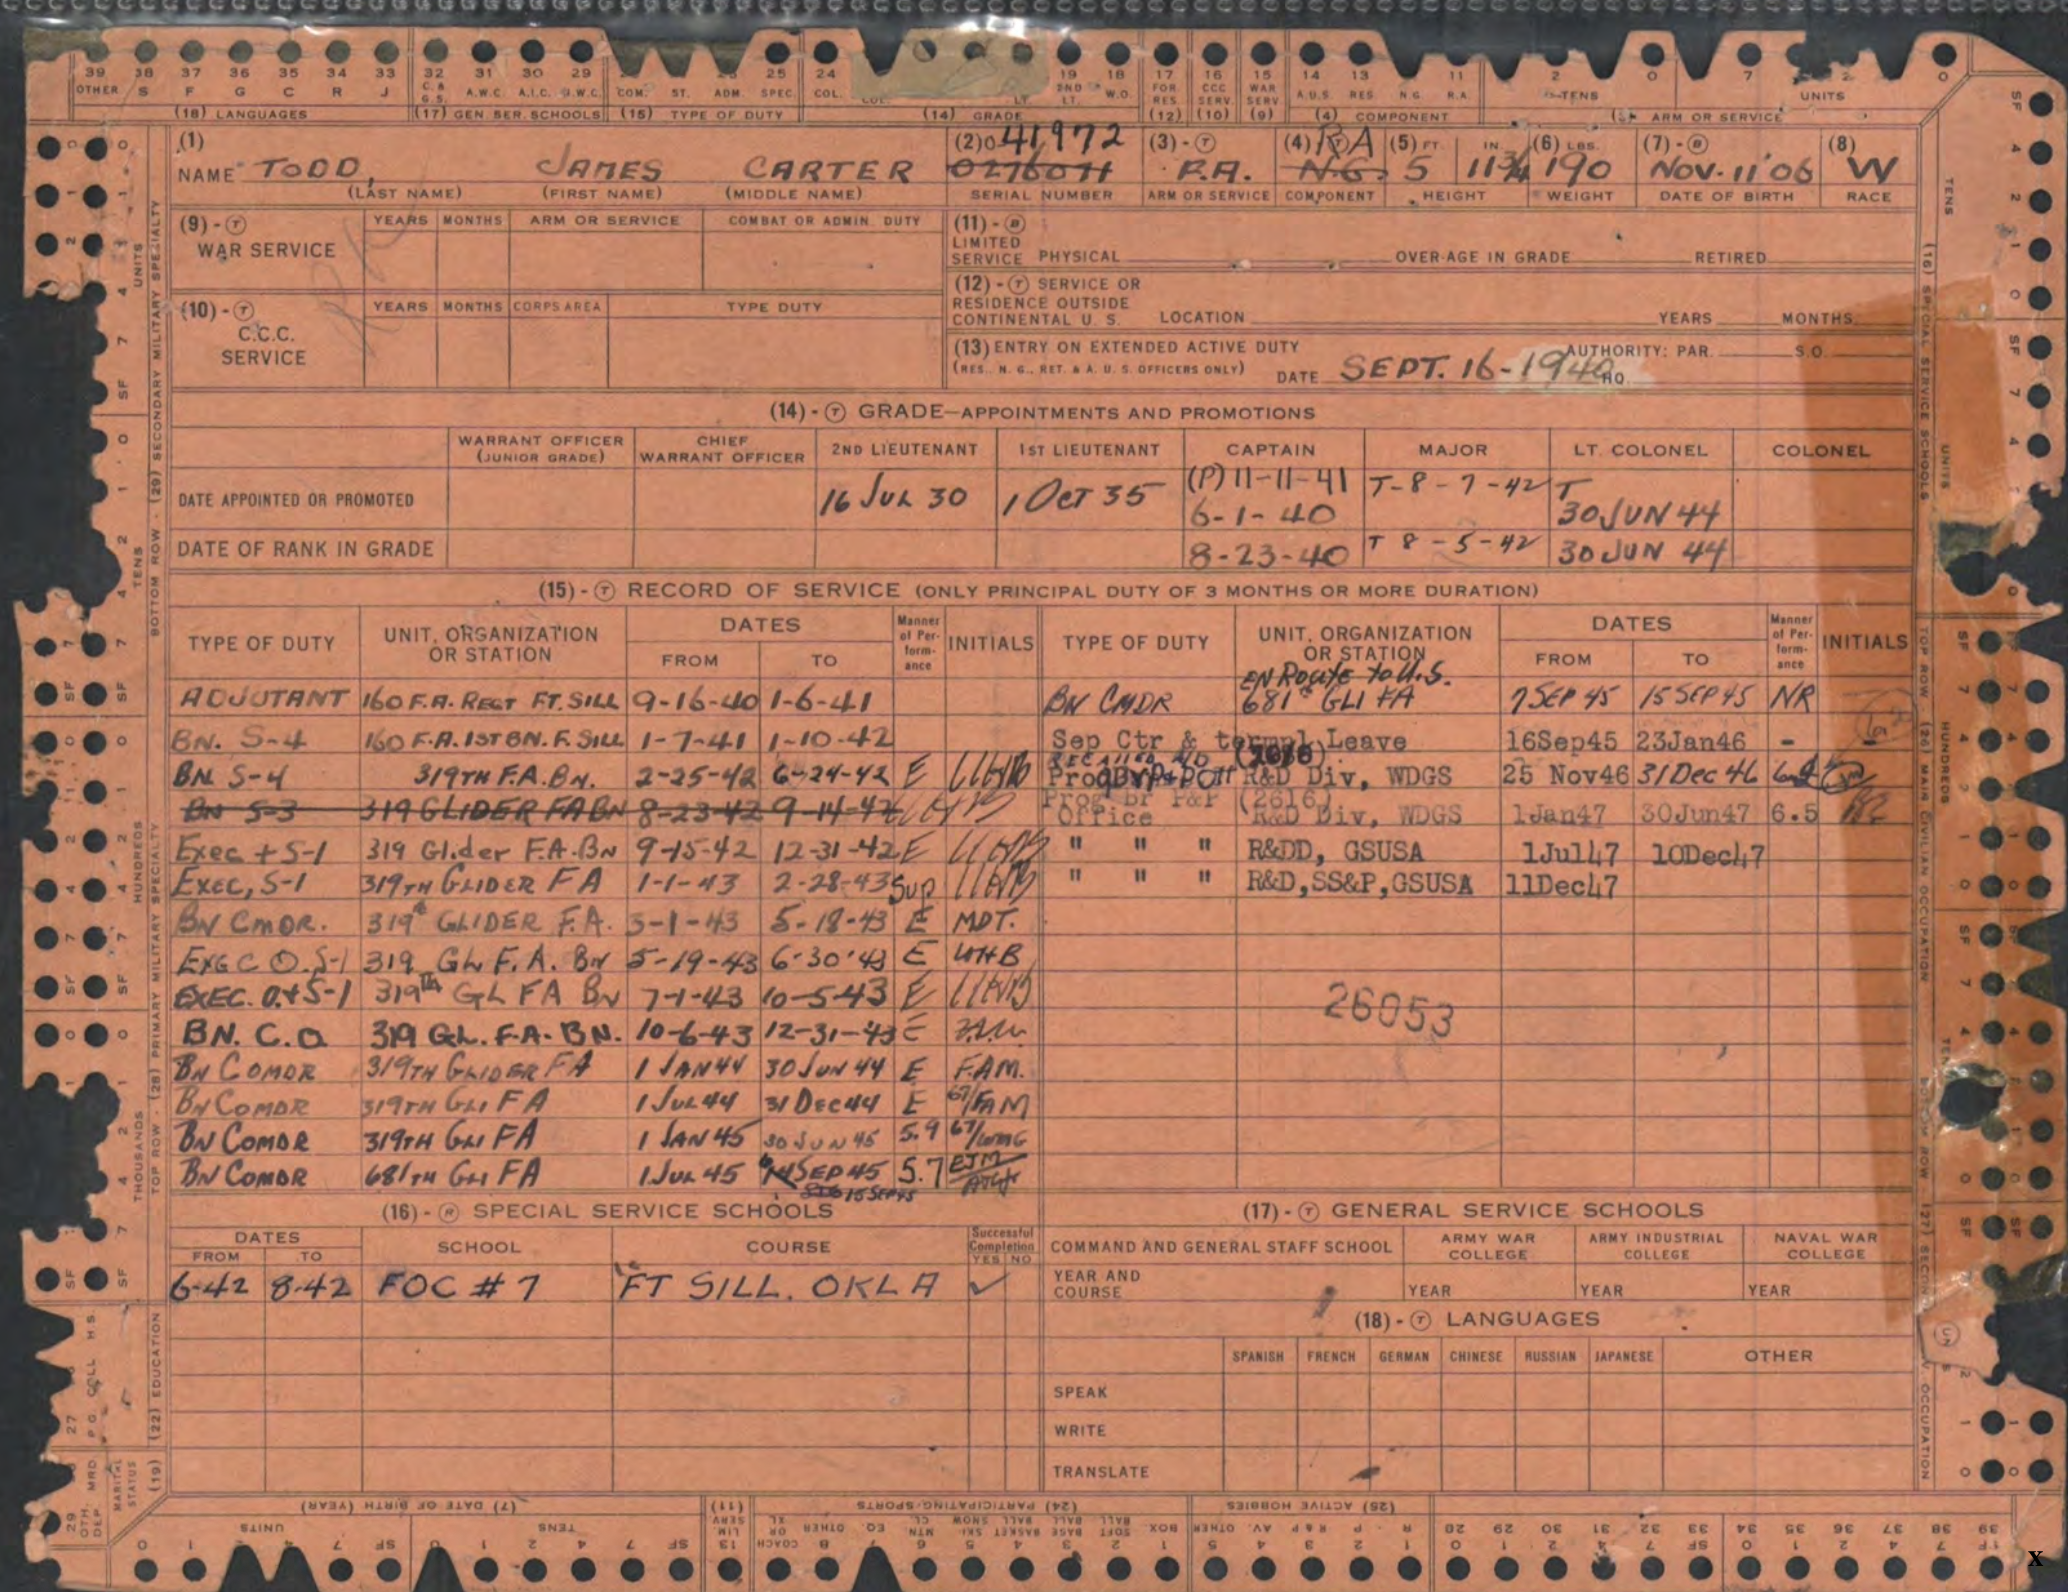 39 38 37 36 35 34 33 32 31 30 29 25 24 19 18 17 16 15 14 13 11 2 0 7 2 0
OTHER S F G C R J C.& G.S. A.W.C. A.I.C. N.W.C. COM. ST. ADM. SPEC. COL. LT. 2ND LT. W.O. FOR. RES. CCC SERV. WAR SERV A.U.S. RES. N.G. R.A. TENS UNITS
(18) LANGUAGES (17) GEN. SER. SCHOOLS (15) TYPE OF DUTY (14) GRADE (12) (10) (9) (4) COMPONENT ARM OR SERVICE
(1) (2) O 41972 (3) - T (4) RA (5) FT. IN. (6) LBS. (7) - B (8)
NAME TODD, JAMES CARTER 0276071 F.A. N.G. 5 11 3/4 190 NOV. 11 '06 W
(LAST NAME) (FIRST NAME) (MIDDLE NAME) SERIAL NUMBER ARM OR SERVICE COMPONENT HEIGHT WEIGHT DATE OF BIRTH RACE
(9) - T WAR SERVICE YEARS MONTHS ARM OR SERVICE COMBAT OR ADMIN. DUTY
(11) - B LIMITED SERVICE PHYSICAL OVER-AGE IN GRADE RETIRED
(10) - T C.C.C. SERVICE YEARS MONTHS CORPS AREA TYPE DUTY
(12) - T SERVICE OR RESIDENCE OUTSIDE CONTINENTAL U. S. LOCATION YEARS MONTHS
(13) ENTRY ON EXTENDED ACTIVE DUTY AUTHORITY: PAR. S.O.
(RES., N. G., RET. & A. U. S. OFFICERS ONLY) DATE SEPT. 16-1940 HQ.
(14) - T GRADE—APPOINTMENTS AND PROMOTIONS
WARRANT OFFICER (JUNIOR GRADE) CHIEF WARRANT OFFICER 2ND LIEUTENANT 1ST LIEUTENANT CAPTAIN MAJOR LT. COLONEL COLONEL
DATE APPOINTED OR PROMOTED 16 JUL 30 1 OCT 35 (P) 11-11-41 6-1-40 T-8-7-42 T 30 JUN 44
DATE OF RANK IN GRADE 8-23-40 T 8-5-42 30 JUN 44
(15) - T RECORD OF SERVICE (ONLY PRINCIPAL DUTY OF 3 MONTHS OR MORE DURATION)
TYPE OF DUTY UNIT, ORGANIZATION OR STATION DATES FROM TO Manner of Performance INITIALS TYPE OF DUTY UNIT, ORGANIZATION OR STATION DATES FROM TO Manner of Performance INITIALS
ADJUTANT 160 F.A. REGT FT. SILL 9-16-40 1-6-41
BN. S-4 160 F.A. 1ST BN. F. SILL 1-7-41 1-10-42
BN S-4 319TH F.A. BN. 2-25-42 6-24-42 E
BN S-3 319 GLIDER FA BN 8-23-42 9-14-42
Exec + S-1 319 Glider F.A. BN 9-15-42 12-31-42 E
EXEC, S-1 319TH GLIDER F A 1-1-43 2-28-43 Sup
BN CMDR. 319th GLIDER F.A. 3-1-43 5-18-43 E MDT.
EXEC O. S-1 319 GL F. A. BN 5-19-43 6-30-43 E WHB
EXEC. O. + S-1 319TH GL FA BN 7-1-43 10-5-43 E
BN. C. O 319 GL. F.A. BN. 10-6-43 12-31-43 E
BN COMDR 319TH GLIDER FA 1 JAN 44 30 JUN 44 E F.A.M.
BN COMDR 319TH GLI FA 1 JUL 44 31 DEC 44 E 67/FAM
BN COMDR 319TH GLI FA 1 JAN 45 30 JUN 45 5.9
BN COMDR 681TH GLI FA 1 JUL 45 SEP 45 5.7 EJM
15 SEP 45
EN Route to U.S.
BN CMDR 681st GLI FA 7 SEP 45 15 SEP 45 NR
Sep Ctr & termnl Leave 16Sep45 23Jan46 - -
RECALLED AD
R&D Div, WDGS 25 Nov46 31 Dec 46
Prog. br P&P Office (2616) R&D Div, WDGS 1Jan47 30Jun47 6.5
" " " R&DD, GSUSA 1Jul47 10Dec47
" " " R&D,SS&P,GSUSA 11Dec47
26053
(16) - R SPECIAL SERVICE SCHOOLS
DATES FROM TO SCHOOL COURSE Successful Completion YES NO
6-42 8-42 FOC # 7 FT SILL. OKLA ✓
(17) - T GENERAL SERVICE SCHOOLS
COMMAND AND GENERAL STAFF SCHOOL ARMY WAR COLLEGE ARMY INDUSTRIAL COLLEGE NAVAL WAR COLLEGE
YEAR AND COURSE YEAR YEAR YEAR
(18) - T LANGUAGES
SPANISH FRENCH GERMAN CHINESE RUSSIAN JAPANESE OTHER
SPEAK
WRITE
TRANSLATE
BOTTOM ROW - (29) SECONDARY MILITARY SPECIALTY
TOP ROW - (28) PRIMARY MILITARY SPECIALTY
UNITS TENS HUNDREDS THOUSANDS
(22) EDUCATION
P.G. COLL H.S.
(19) MARITAL STATUS
OTH. DEP. MRD.
(16) SPECIAL SERVICE SCHOOLS
TOP ROW - (26) MAIN CIVILIAN OCCUPATION
(7) DATE OF BIRTH (YEAR) (11) (24) PARTICIPATING-SPORTS (25) ACTIVE HOBBIES
UNITS TENS LIM. SERV
x